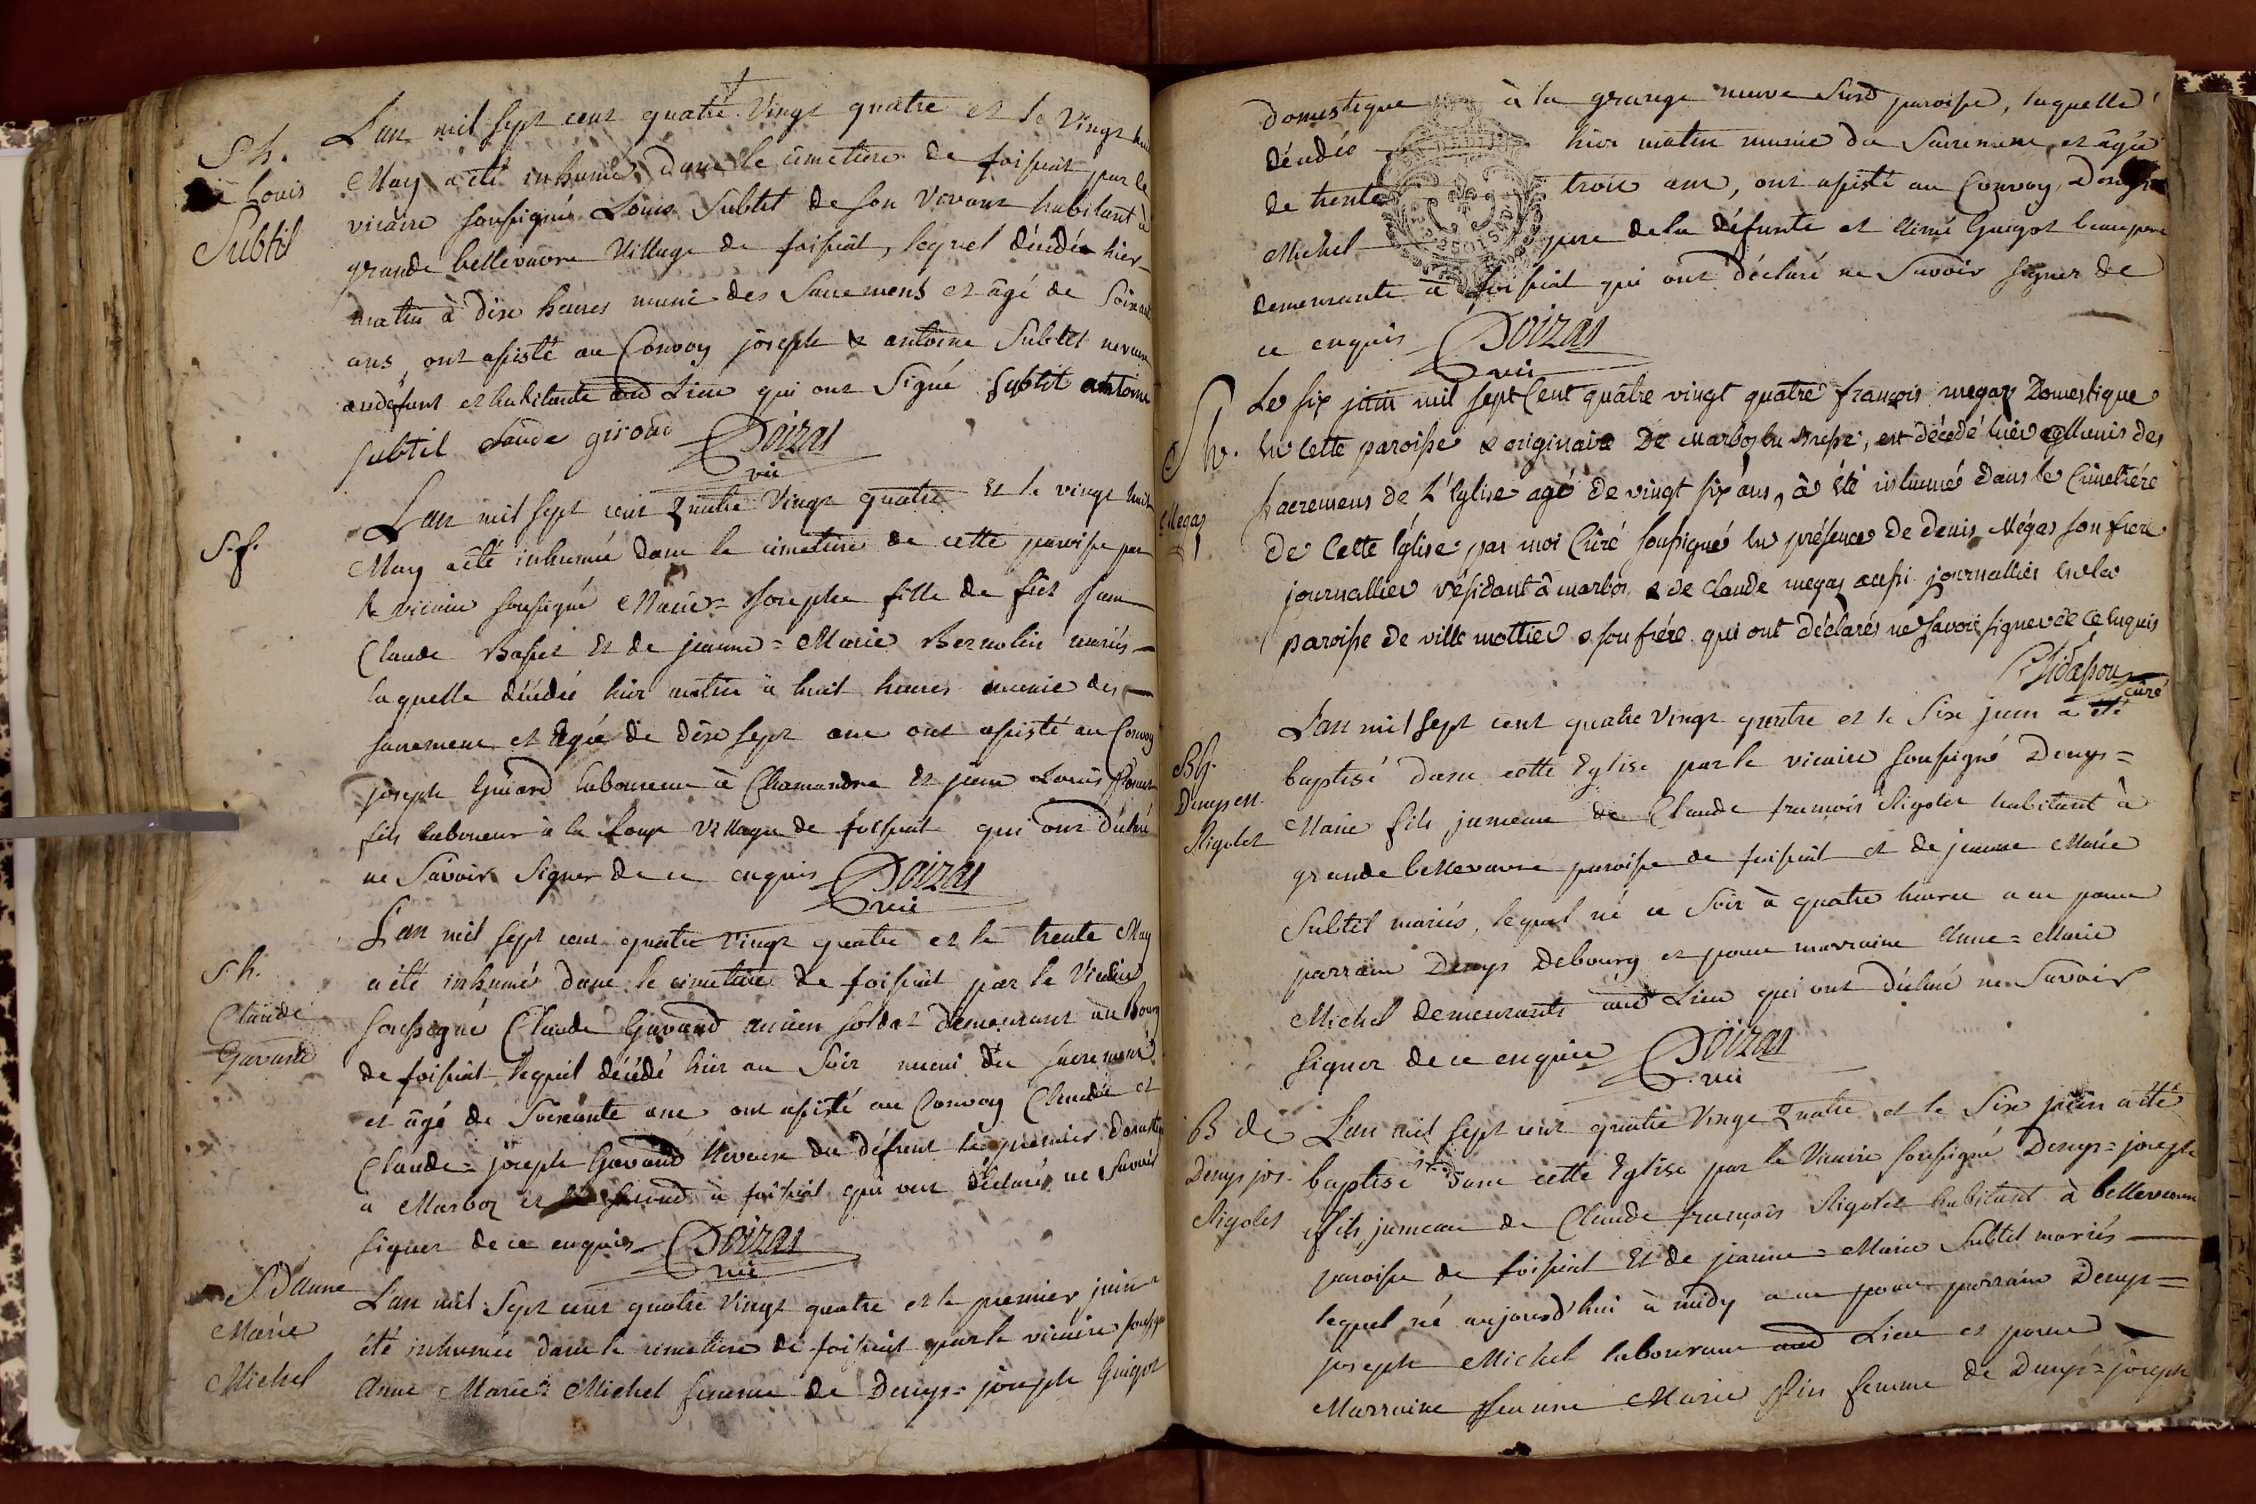 S h.
Louis
Subtil
L'an mil sept cent quatre Vingt quatre et le Vingt
May a été inhumé dans le cimetiere de foissiat par le
vicaire soussigné Louis Subtil de son Vivant habitant à
grande bellevavre Village de foissiat, lequel décédé hier
matin à dix heures muni des Sacremens et âgé de Soixante
ans, ont assisté au Convoy joseph & antoine Subtil neveux
au défunt et habitants aud Lieu qui ont Signé Subtil antoine
Subtil Claude giroud Doizas
vic
S. f.
L'an mil sept cent quatre Vingt quatre Et le vingt huit
May a été inhumée dans le cimetiere de cette paroisse par
le vicaire soussigné Marie=Josephe fille de feu Jean
Claude Basset Et de jeanne=Marie Bernolin mariés
laquelle décédée hier matin à huit heures munie des
sacremens et Agée de dix sept ans ont assisté au Convoy
joseph Guiard laboureur à Chamandre Et jean Louis
fils laboureur à la Loup Village de foissiat qui ont déclaré
ne Savoir Signer de ce enquis Doizas
vic
S. h.
Claude
Gavand
L'an mil sept cent quatre Vingt quatre et le trente May
a été inhumé dans le cimetiere de foissiat par le Vicaire
soussigné Claude Gavand ancien soldat demeurant au Bourg
de foissiat lequel décédé hier au Soir muni des sacremens
et âgé de Soixante ans ont assisté au Convoy Claude et
Claude=joseph Gavand Neveux du défunt le premier
à Marboz et le second à foissiat qui ont déclaré ne Savoir
signer de ce enquis Doizas
vic
S. d'anne
Marie
Michel
L'an mil Sept cent quatre Vingt quatre et le premier juin
été inhumée dans le cimetiere de foissiat par le vicaire soussigné
Anne Marie=Michel femme de Denys=joseph Guigot
domestique à la grange neuve Susd paroisse, laquelle
décédée hier matin munie des Sacremens, et âgée
de trente trois ans, ont assisté au Convoy Denys
Michel pere de la défunte et Aimé Guigot beau pere
demeurants à foissiat qui ont déclaré ne Savoir signer de
ce enquis Doizas
vic
S h.
Megas
Le six juin mil sept Cent quatre vingt quatre françois megas Domestique
en cette paroisse & originaire De Marbos en Bresse, est décédé hier Munis des
Sacremens de L'Eglise agé de vingt six ans, à été inhumé dans le Cimetiére
De Cette Église par moi Curé soussigné en présence de Denis Mégas son frere
journallier résidant à marbos & de Claude megas aussi journallier en la
paroisse de ville mottier & son frére qui ont déclarés ne Savoir signer de ce enquis
curé
B h.
Denys M.
Rigolet
L'an mil Sept cent quatre Vingt quatre et le Six juin a été
baptisé dans cette Eglise par le vicaire soussigné Denys=
Marie fils jumeau de Claude françois Rigolet habitant à
grande bellevavre paroisse de foissiat et de jeanne Marie
Subtil mariés, lequel né ce Soir à quatre heures a eu pour
parrain Denys Debourg et pour marraine Anne=Marie
Michel demeurants aud Lieu qui ont déclaré ne Savoir
signer de ce enquis Doizas
vic
B de
Denys jos.
Rigolet
L'an mil sept cent quatre Vingt quatre et le Six juin a été
baptisé dans cette Eglise par le Vicaire soussigné Denys=joseph
fils jumeau de Claude françois Rigolet habitant à bellevavre
paroisse de foissiat Et de jeanne=Marie Subtil mariés
lequel né aujourd'hui à midy a eu pour parrain Denys=
joseph Michel laboureur aud Lieu et pour
Marraine Jeanne Marie Pin femme de Denys=joseph